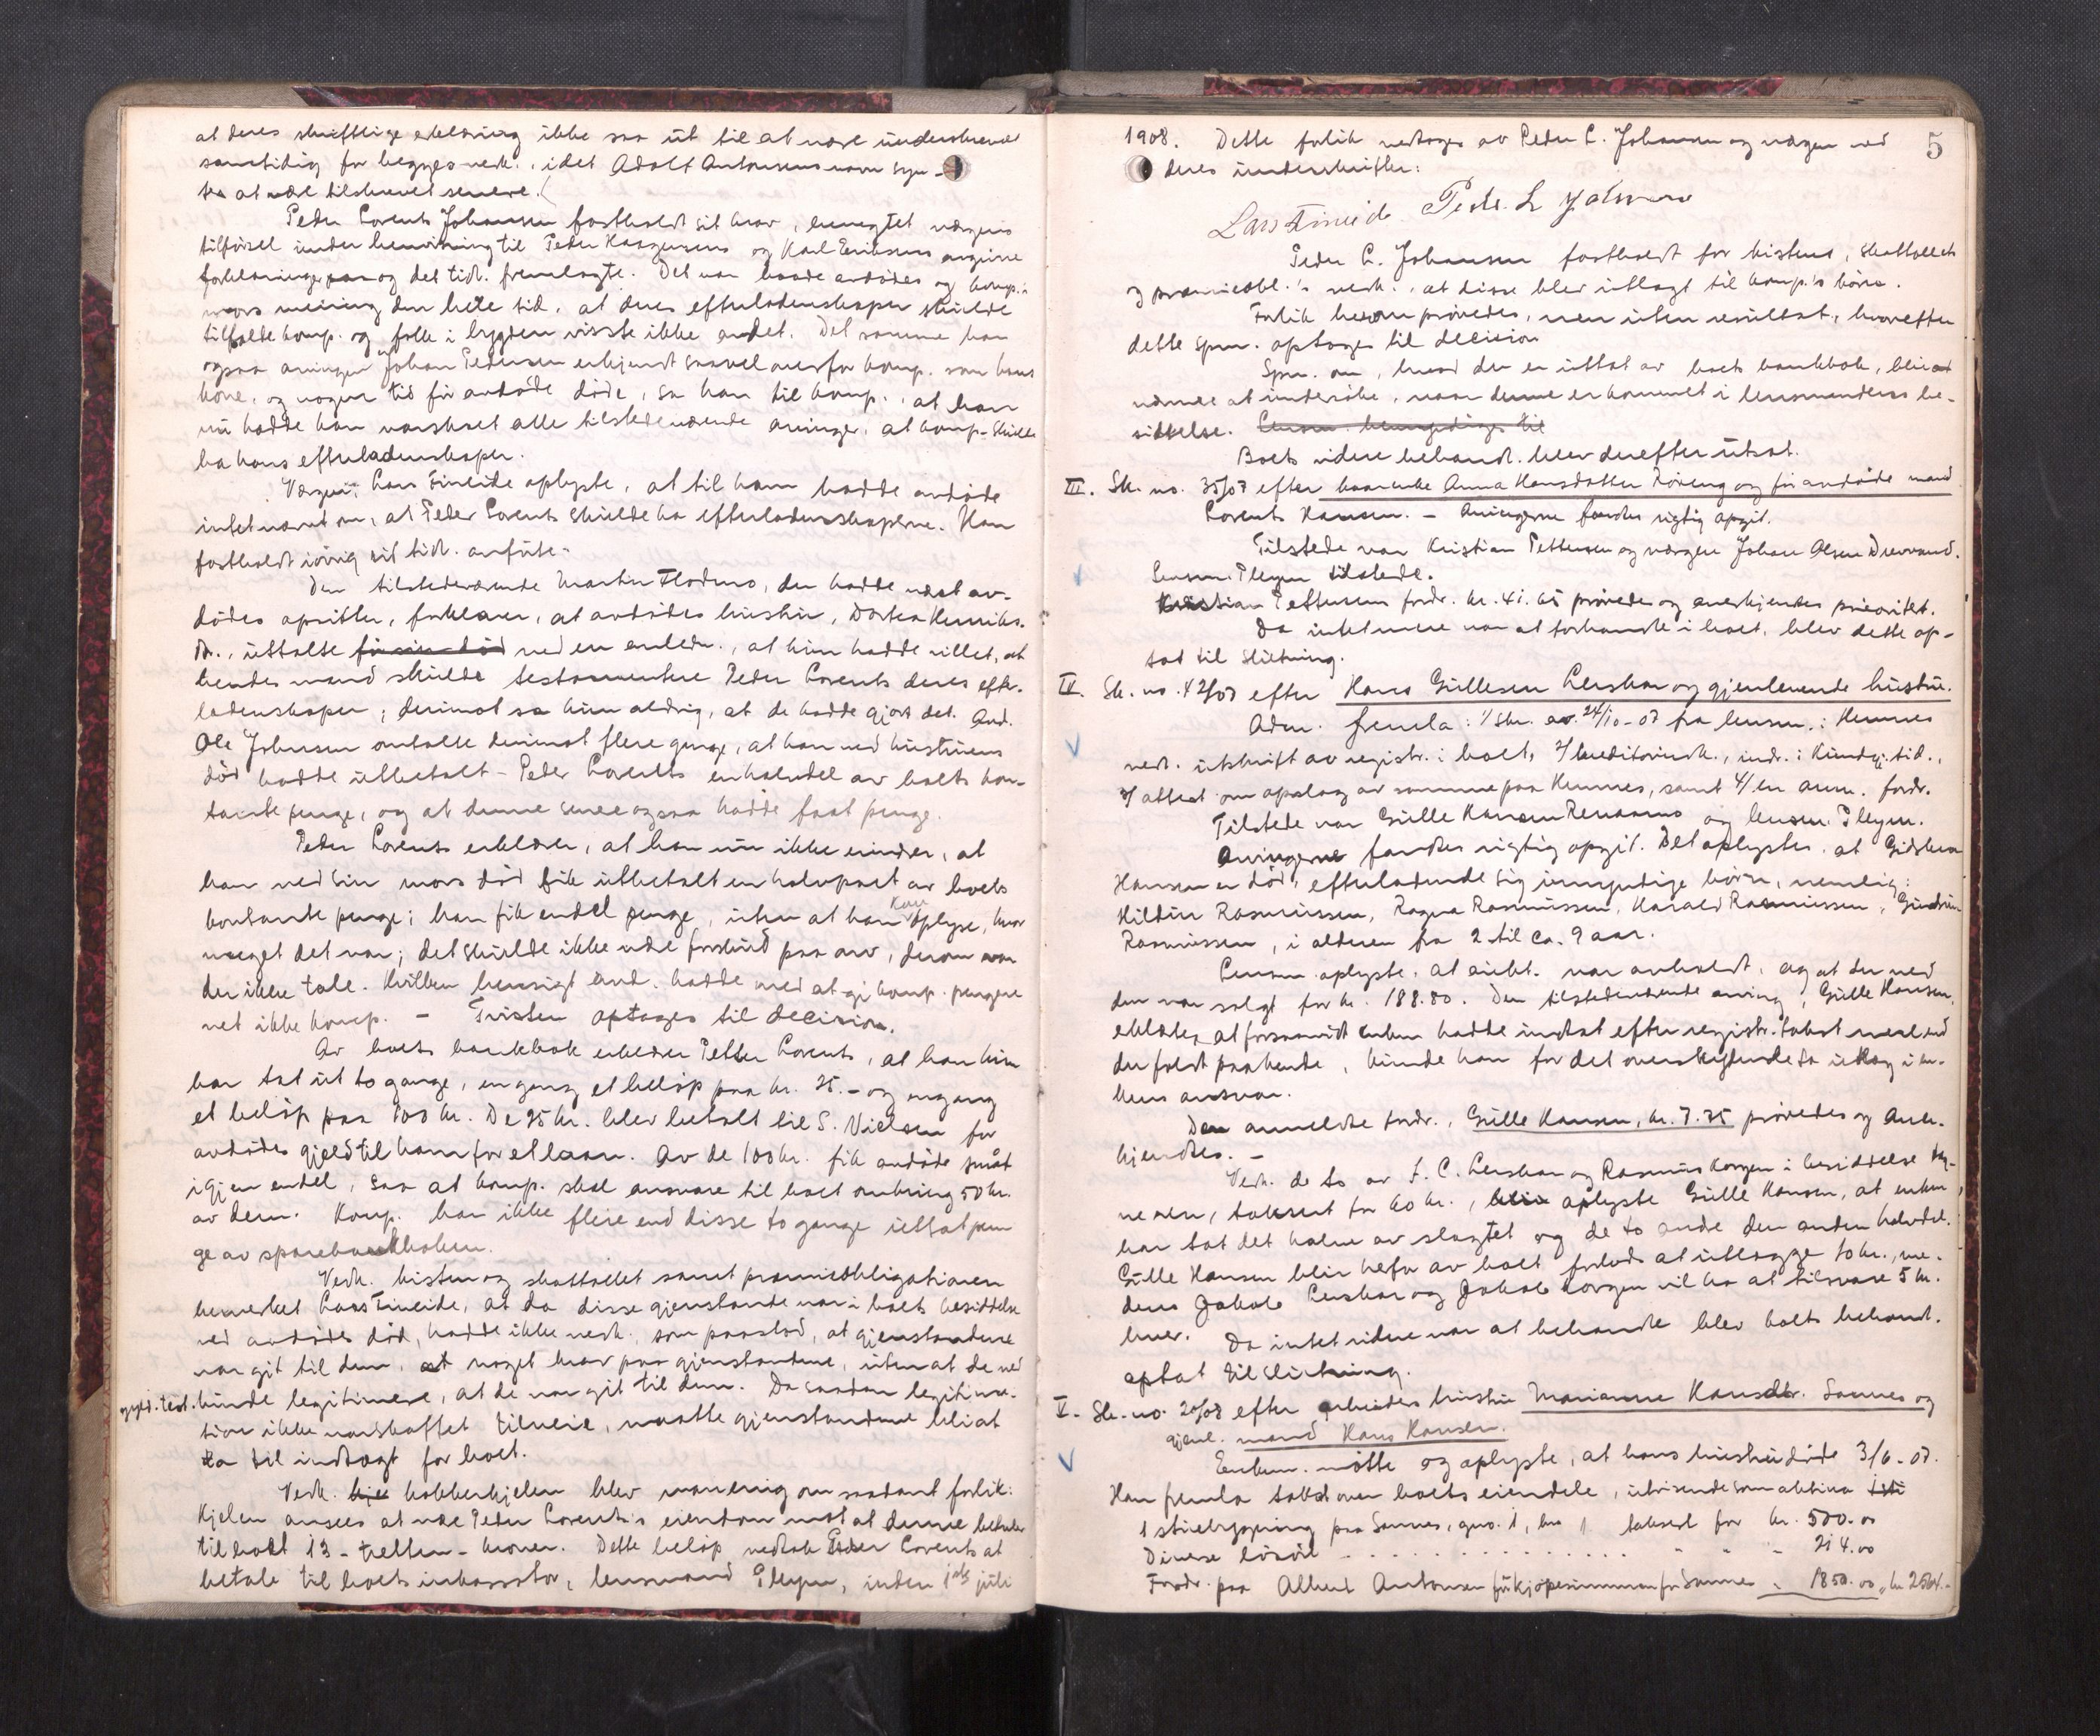 at deres skriftlige erklæring ikke saa ut til at være underskrevet
samtidig for begges vedk., idet Adolf Antonsens navn syn-
tes at være tilskrevet senere.
Peder Lorents Johansen fastholdt sit krav, benegtet vergens
tilførsel under henvisning til Peder Kaagensens og Karl Eriksens avgivne
forklaringer og det tidl. fremlagte. Det var baade avdødes og komp.s
mors mening den hele tid, at deres efterladenskaper skulde
tilfalde komp. og folk i bygden visste ikke andet. Det samme har
ogsaa arvingen Johan Pedersen erkjendt saavel overfor komp. som hans
kone, og nogen tid før avdøde døde, sa han til komp., at han
nu hadde han varskuet alle tilstedeværende arvinger, at komp. skulde
ha hans efterladenskaper.
Vergen Lars Fineide oplyste, at til ham hadde avdøde
intet nævnt om, at Peder Lorents skulde ha efterladenskaperne. Han
fastholdt iøvrig sit tidl. anførte.
Den tilstedeværende Martin Flodmo, der hadde været av-
dødes opsitter, forklarer, at avdødes hustru, Dortea Henriks-
dr., uttalte før sin død ved en anledn., at hun hadde villet, at
hendes mand skulde testamentere Peder Lorents deres efter-
ladenskaper; derimot sa hun aldrig, at de hadde gjort det. Avd.
Ole Johnsen omtalte derimot flere gange, at han ved hustruens
død hadde utbetalt Peder Lorents en halvdel av boets kon-
tante penge, og at denne senere ogsaa hadde faat penge.
Peder Lorents erklærer, at han nu ikke erindrer, at
han ved sin mors død fik utbetalt en halvpart av boets
kontante penge; han fik endel penge, uten at han kan oplyse, hvor
meget det var; det skulde ikke være forskud paa arv, derom var
der ikke tale. Hvilken hensigt avd. hadde med at gi komp. pengene
vet ikke komp. – Tvisten optages til decision.
Av boets bankbok erklærer Peder Lorents, at han kun
har tat ut to gange, en gang et beløp paa kr. 25.– og engang
et beløp paa 100 kr. De 25 kr. blev betalt til S. Nielsen for
avdødes gjeld til ham for et laan. Av de 100 kr. fik avdøde smaat
igjen endel, saa at komp. skal ansvare til boet omkring 50 kr.
av dem. Komp. har ikke flere end disse to gange uttat pen-
ge av sparebankboken.
Vedk. kisten og skattollet samt præmieobligationen
bemerket Lars Fineide, at da disse gjenstande var i boets besiddelse
ved avdødes død, hadde ikke vedk. som paastod, at gjenstandene
var git til dem, noget krav paa gjenstandene, uten at de ved
kunde legitimere, at de var git til dem. Da saadan legitima-
tion ikke var skaffet tilveie, maatte gjenstandene bli at
ta til indtægt for boet.
Vedk. kje kobberkjelen blev man enig om saadant forlik:
Kjelen ansees at være Peder Lorents's eiendom mot at denne betaler
til boet 13 – tretten – kroner. Dette beløp vedtok Peder Lorents at
betale til boets inkassator, lensmand Pleym, inden 1ste juli
5
1908. Dette forlik vedtages av Peder L. Johansen og vergen ved
deres underskrifter:
Lars Fineide. Peder L Johansen
Peder L. Johansen fastholdt for kistens, skattollets
og præmieobl.'s vedk., at disse blev utlagt til komp.'s børn.
Forlik herom prøvedes, men uten resultat, hvorefter
dette spm. optages til decision
Spm. om, hvad der er uttat av boets bankbok, blir at
nærmere at undersøke, naar denne er kommet i lensmandens be-
siddelse. Lensm. bemyndiges til
Boets videre behandl. blev derefter utsat.
III. Sk. no. 35/07 efter kaarenke Anna Hansdatter Røvang og før avdøde mand
Lorents Hansen. – Arvingerne fandtes rigtig opgit.
Tilstede var Kristian Pettersen og vergen Johan Olsen Drevvand.
Lensm. Pleym tilstede.
Kristian Pettersens fordr. kr. 41.65 prøvedes og anerkjendtes prioritet.
Da intet mere var at forhandle i boet, blev dette op-
tat til slutning.
IV. Sk. no. 42/07 efter Hans Gullesen Leirskar og gjenlevende hustru.
Adm. fremla: 1/ skr. av 24/10-07 fra lensm. i Hemnes
vedl. utskrift av registr. i boet, 2/ kreditorindk., indr. i Kundg. tid.,
3/ attest om opslag av samme paa Hemnes, samt 4/ en anm. fordr.
Tilstede var Gulle Hansen Renaamo og lensm. Pleym.
Arvingerne fandtes rigtig opgit. Det oplystes, at Gidskea
Hansen er død, efterladende sig umyndige børn, nemlig:
Hildur Rasmussen, Ragna Rasmussen, Harald Rasmussen, Gudrun
Rasmussen, i alderen fra 2 til ca. 9 aar.
Lensm. oplyste, at aukt. var avholdt, og at der ved
den var solgt for kr. 188.80. Den tilstedeværende arving, Gulle Hansen,
erklærte, at forsaavidt enken hadde indtat efter registr. takst mere end
der faldt paa hende, kunde han for det overskytende ta utlæg i en-
kens ansvar.
Den anmeldte fordr., Gulle Hansen, kr. 7.75 prøvedes og aner-
kjendtes. –
Vedk. de to av J. C. Leirskar og Rasmus Korgen i besiddelse
værende, taksert for 60 kr., blir oplyste Gulle Hansen, at enken
har tat det halve av slagtet og de to andre den anden halvdel.
Gulle Hansen blir herfor av boet forlods at utlægge 10 kr., me-
dens Jakob Leirskar og Jakob Korgen vil ha at tilsvare 5 kr.
hver. Da intet videre var at behandle blev boets behandl.
optat til slutning.
V. Sk. no. 20/08 efter arbeiders hustru Marianne Hansdtr. Sannes og
gjenl. mand Hans Hansen.
Enkem. møtte og oplyste, at hans hustru døde 3/6-07.
Han fremla takst over boets eiendele, utvisende som aktiva
1 stuebygning paa Sannes, gno. 1, bno 1 taksert for kr. 500.00
Diverse løsøre . . . . . . . . . . . " " – 214.00
Fordr. paa Albert Antonsen for kjøpesummen for Sannes – 1850.00, kr. 2564.–